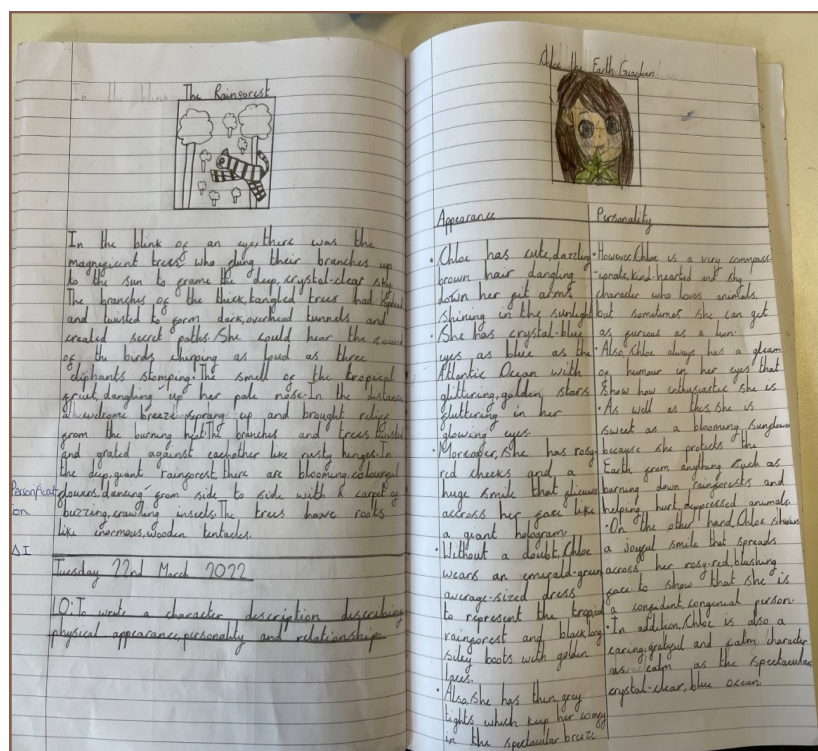 The Rainforest
In the blink of an eye, there was the
magnificent trees who flung their branches up
to the sun to frame the deep, crystal-clear sky.
The branches of the thick, tangled trees had
and twisted to form dark, overhead tunnels and
created secret paths. She could hear the sound
of the birds chirping as loud as three
elephants stomping. The smell of the tropical
fruit, dangling up her pale nose. In the distance
a welcome breeze sprang up and brought relief
from the burning heat. The branches and trees twisted
and grated against eachother like rusty hinges. In
the deep, giant rainforest, there are blooming, colourful
flowers, dancing from side to side with a carpet of
buzzing, crawling insects. The trees have roots
like enormous, wooden tentacles.
Personificati
on
Tuesday 22nd March 2022
LO: To write a character description describing
physical appearance, personality and relationships
Chloe the Earth Guardian
Appearance
• Chloe has cute, dazzling
brown hair dangling
down her fit arms
shining in the sunlight
• She has crystal-blue
eyes as blue as the
Atlantic Ocean with
glittering, golden stars
fluttering in her
glowing eyes.
• Moreover, she has rosy
red cheeks and a
huge smile that
accross her face like
a giant hologram.
• Without a doubt, Chloe
wears an emerald-green
average-sized dress
to represent the tropical
rainforest and black, long
silky boots with golden
laces.
• Also, she has thin, grey
tights which keep her comfy
in the spectacular breeze
Personality
• However, Chloe is a very compass-
-ionate, kind-hearted and shy
character who loves animals.
but sometimes she can get
as furious as a lion.
• Also, Chloe always has a gleam
of humour in her eyes that
show how enthusiastic she is
• As well as this, she is
sweet as a blooming sunflower
because she protects the
Earth from anything such as
burning down rainforests and
helping hurt, depressed animals.
• On the other hand, Chloe shows
a joyful smile that spreads
across her rosy-red, blushing
face to show that she is
a confident, congenial person.
• In addition, Chloe is also a
caring, grateful and calm character
as calm as the spectacular
crystal-clear, blue ocean